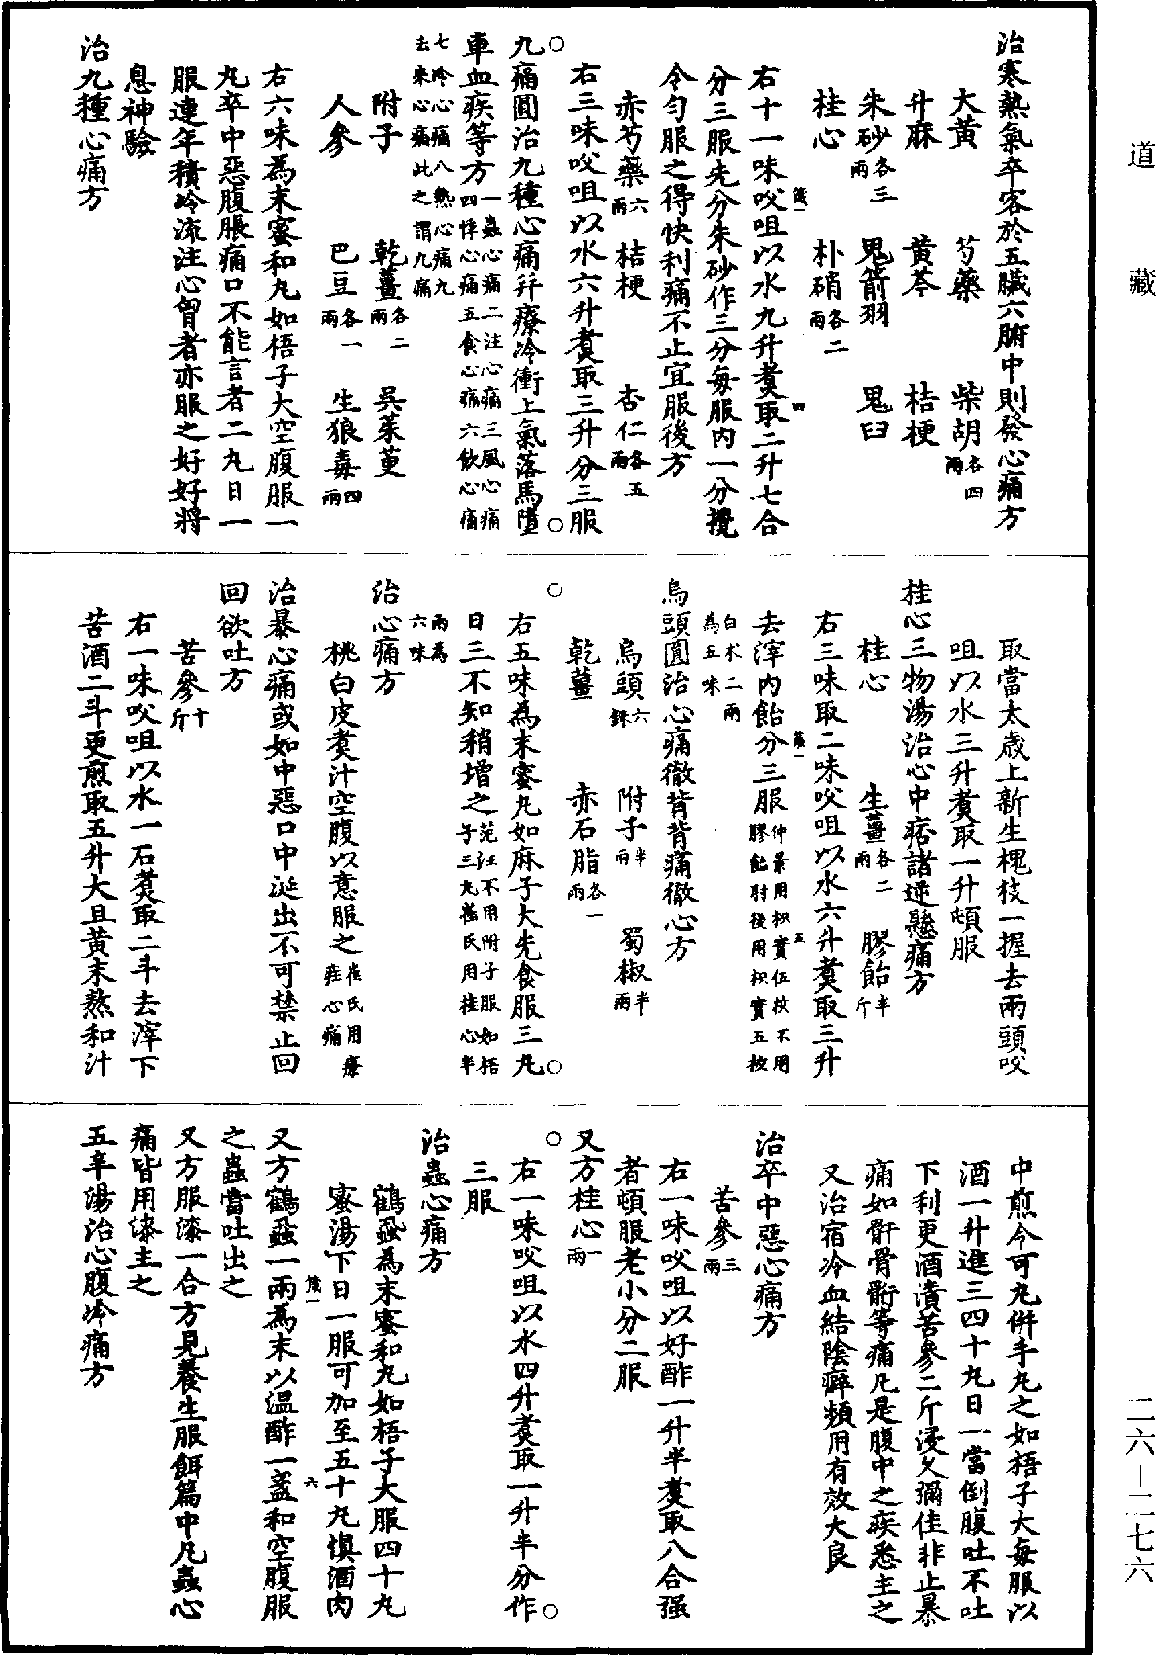 道藏
治寒熱氣卒客於五臟六腑中則發心痛方
大黃 芍藥 柴胡各四兩
升麻 黃芩 桔梗
朱砂各三兩 鬼箭羽 鬼臼
桂心 朴硝各二兩
右十一味㕮咀以水九升煑取二升七合
分三服先分朱砂作三分每服內一分攪
令勻服之得快利痛不止宜服後方
赤芍藥六兩 桔梗 杏仁各五兩
右三味㕮咀以水六升煑取三升分三服
九痛圓治九種心痛并療冷衝上氣落馬墮
車血疾等方一蟲心痛二注心痛三風心痛四悸心痛五食心痛六飲心痛
七冷心痛八熱心痛九去來心痛此之謂九痛
附子 乾薑各二兩 吳茱萸
人參 巴豆各一兩 生狼毒四兩
右六味為末蜜和丸如梧子大空腹服一
丸卒中惡腹脹痛口不能言者二丸日一
服連年積冷流注心胷者亦服之好好將
息神驗
治九種心痛方
取當太歲上新生槐枝一握去兩頭㕮
咀以水三升煑取一升頓服
桂心三物湯治心中痞諸逆懸痛方
桂心 生薑各二兩 膠飴半斤
右三味取二味㕮咀以水六升煑取三升
去滓內飴分三服仲景用枳實伍枚不用膠飴肘後用枳實五枚
白朮二兩為五味
烏頭圓治心痛徹背背痛徹心方
烏頭六銖 附子半兩 蜀椒半兩
乾薑 赤石脂各一兩
右五味為末蜜丸如麻子大先食服三丸
日三不知稍增之范汪不用附子服如梧子三丸崔氏用桂心半
兩為六味
治心痛方
桃白皮煑汁空腹以意服之崔氏用療疰心痛
治暴心痛或如中惡口中涎出不可禁止回
回欲吐方
苦參十斤
右一味㕮咀以水一石煑取二斗去滓下
苦酒二斗更煎取五升大豆黃末熬和汁
中煎令可丸併手丸之如梧子大每服以
酒一升進三四十丸日一當倒腹吐不吐
下利更酒漬苦參二斤浸久彌佳非止暴
痛如骭骨骱等痛凡是腹中之疾悉主之
又治宿冷血結陰癖頻用有效大良
治卒中惡心痛方
苦參三兩
右一味㕮咀以好酢一升半煑取八合强
者頓服老小分二服
又方桂心一兩
右一味㕮咀以水四升煑取一升半分作
三服
治蟲心痛方
鶴蝨為末蜜和丸如梧子大服四十丸
蜜湯下日一服可加至五十丸慎酒肉
又方鶴蝨一兩為末以温酢一盞和空腹服
之蟲當吐出之
又方服漆一合方見養生服餌篇中凡蟲心
痛皆用漆主之
五辛湯治心腹冷痛方
二六－二七六